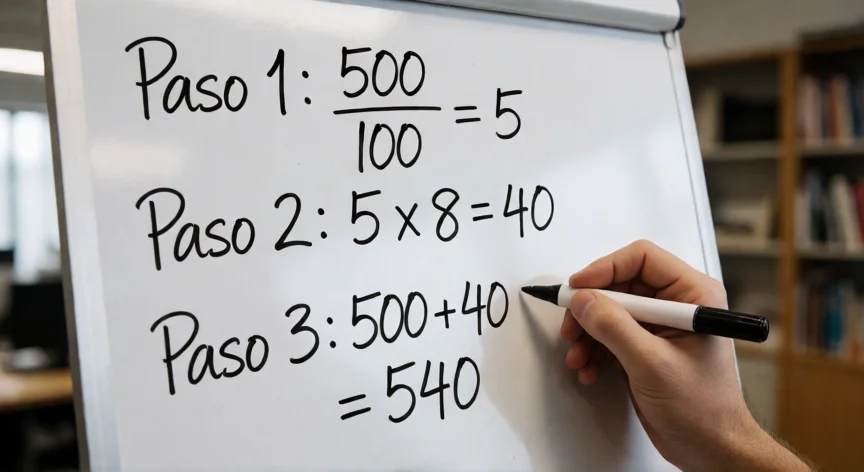 Paso 1: 500/100 = 5
Paso 2: 5 x 8 = 40
Paso 3: 500 + 40
= 540